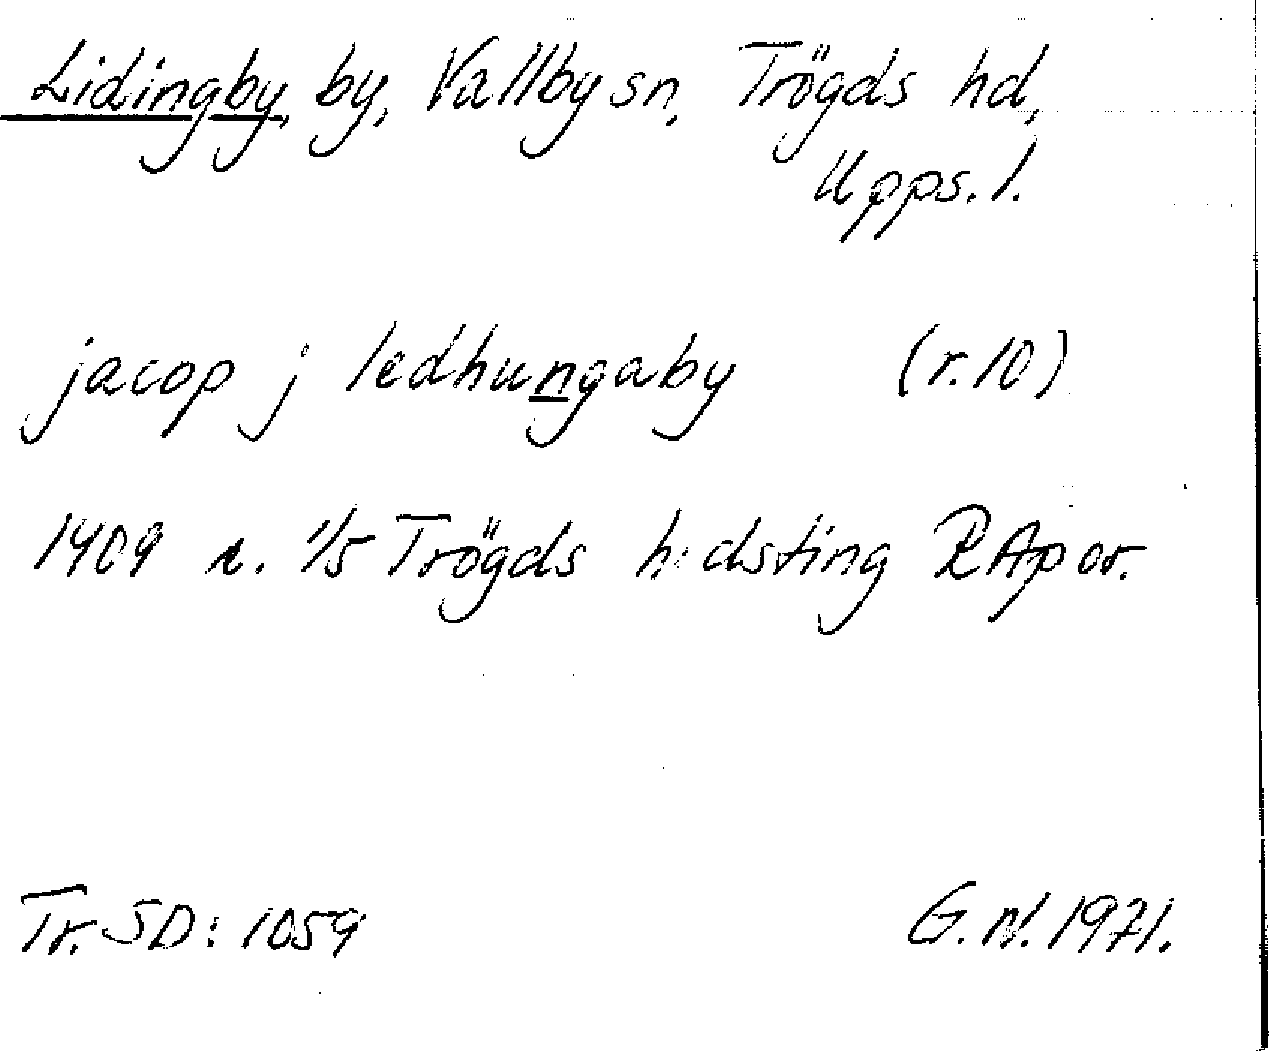 Lidingby, by, Vallby sn, Trögds hd,
Upps. l.
jacop j ledhungaby (r. 10)
1409 u. 1/5 Trögds h:dsting RAp or.
Tr. SD: 1059 G. W. 1971.